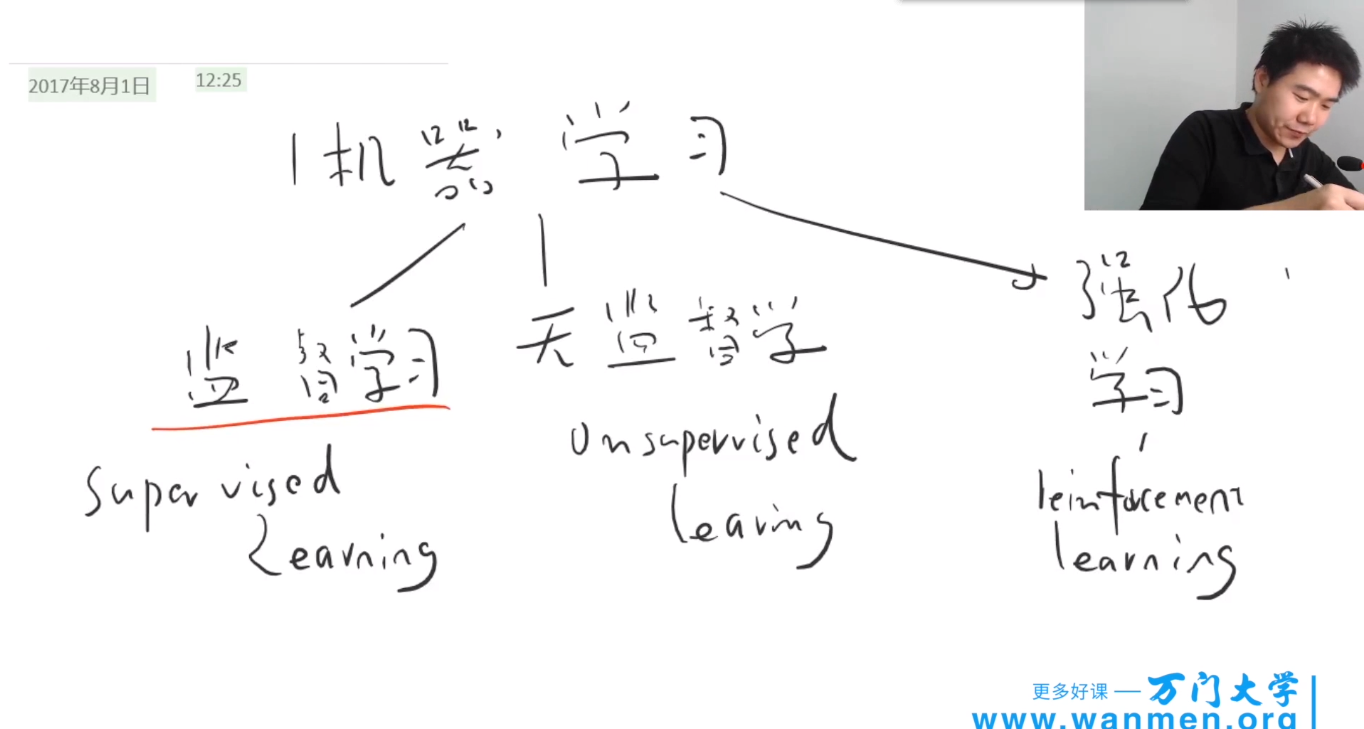 2017年8月1日 12:25
机器学习
监督学习
无监督学
强化
学习
Supervised
Learning
Unsupervised
learing
reinforcement
learning
更多好课 — 万门大学
www.wanmen.org